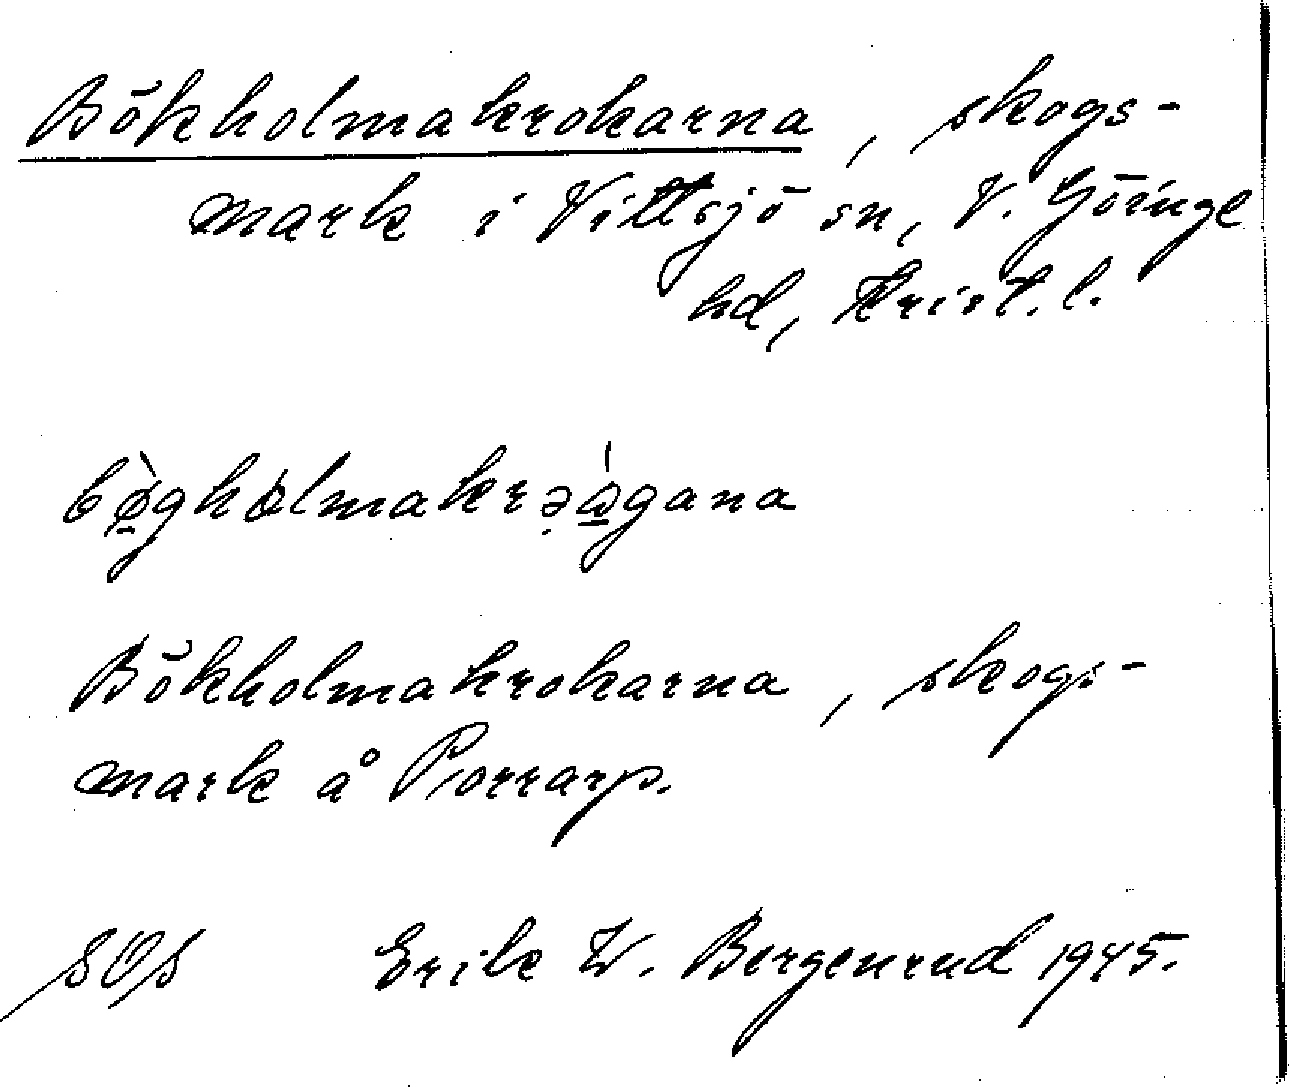 Bökholmakrokarna, skogs-
mark i Vittsjö sn, V. Göinge
hd, Krist. l.
bø̱̀ghølmakrə̣a̱̍gana
Bökholmakrokarna, skogs-
mark å Porrarp.
SOS Erik W. Bergenrud 1945.